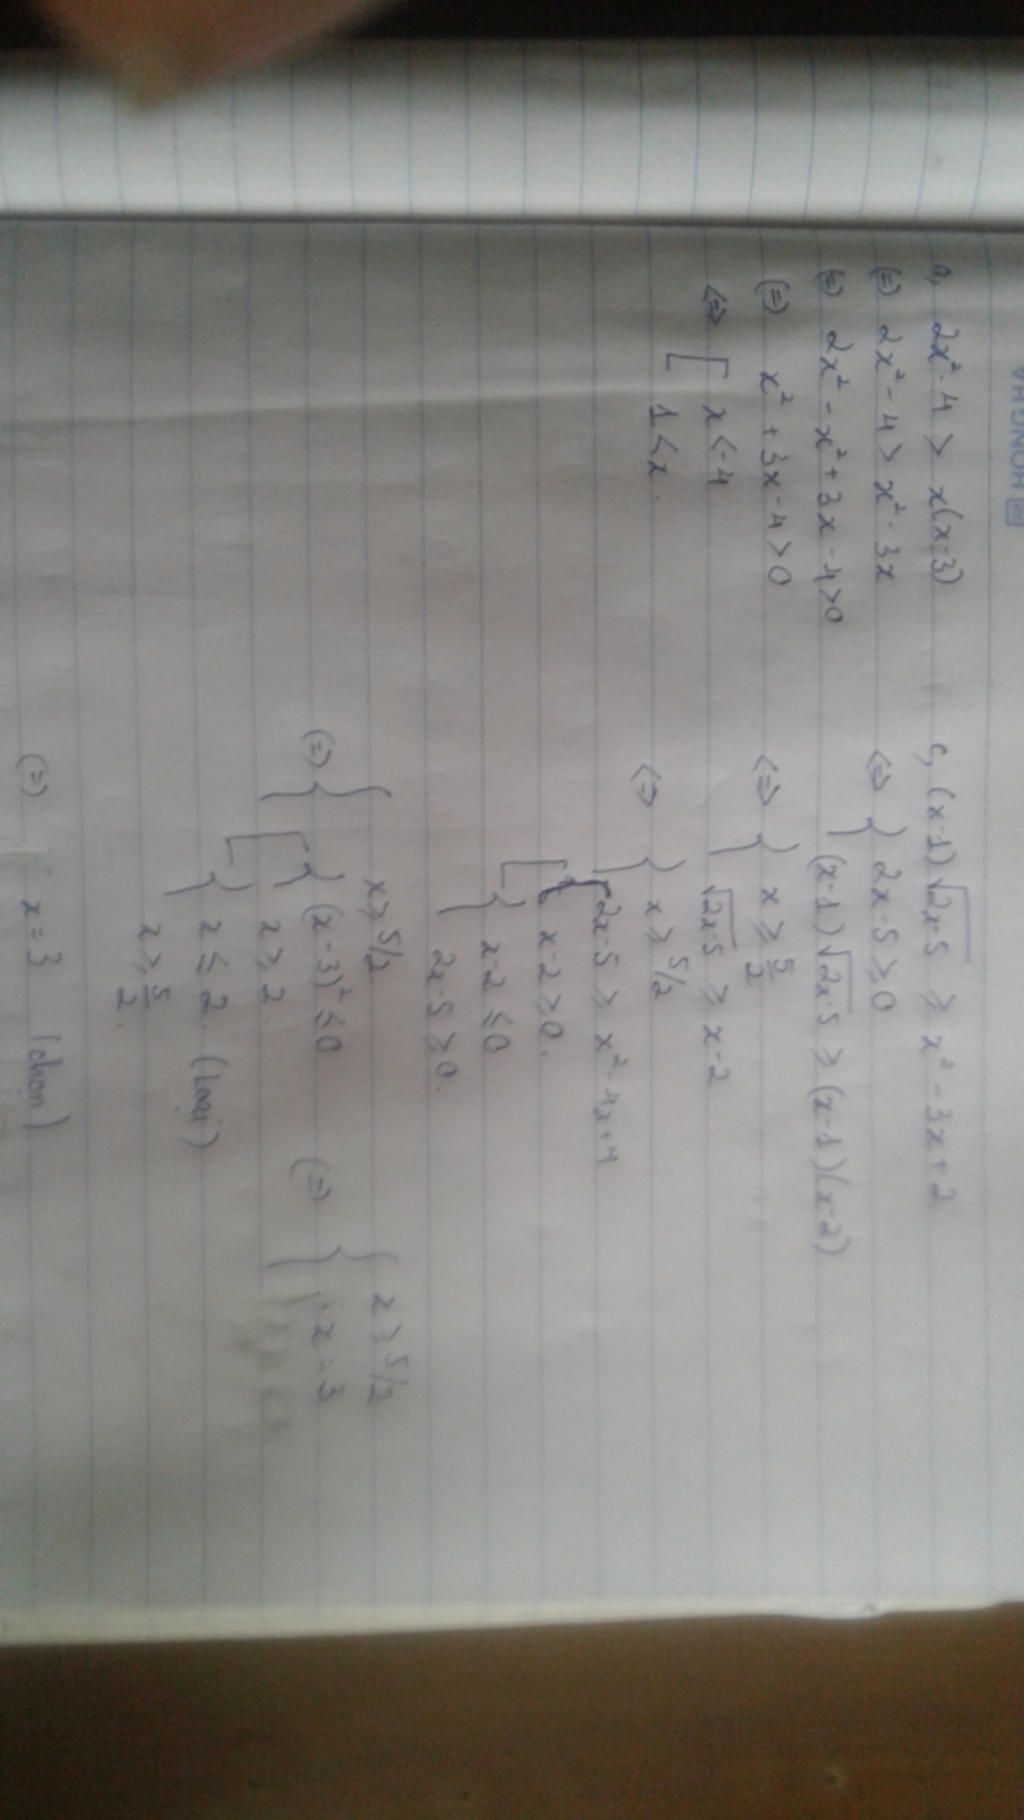 a, 2x² - 4 > x(x-3)
(=) 2x² - 4 > x² - 3x
(=) 2x² - x² + 3x - 4 > 0
(=) x² + 3x - 4 > 0
<=> [ x < -4
1 < x.
c, (x-1) √2x-5 ≥ x² - 3x + 2
<=> { 2x-5 ≥ 0
(x-1) √2x-5 ≥ (x-1)(x-2)
<=> { x ≥ 5/2
√2x-5 ≥ x-2
<=> { x ≥ 5/2
[ { 2x-5 ≥ x² - 4x + 4
x-2 ≥ 0.
{ x-2 ≤ 0
2x-5 ≥ 0.
(=) { x ≥ 5/2
[ { (x-3)² ≤ 0
x ≥ 2.
{ x ≤ 2. (Loại)
x ≥ 5/2.
(=) { x ≥ 5/2
x = 3
(=) x = 3 (chọn)